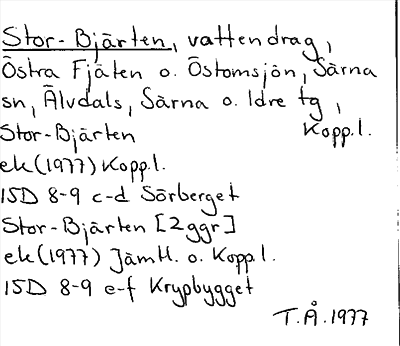 Stor-Bjärten, vattendrag,
Östra Fjäten o. Östomsjön, Särna
sn, Älvdals, Särna o. Idre tg,
Stor-Bjärten Kopp.l.
ek(1977) Kopp.l.
15D 8-9 c-d Sörberget
Stor-Bjärten [2ggr]
ek(1977) Jämtl. o. Kopp.l.
15D 8-9 e-f Krypbygget
T.Å.1977